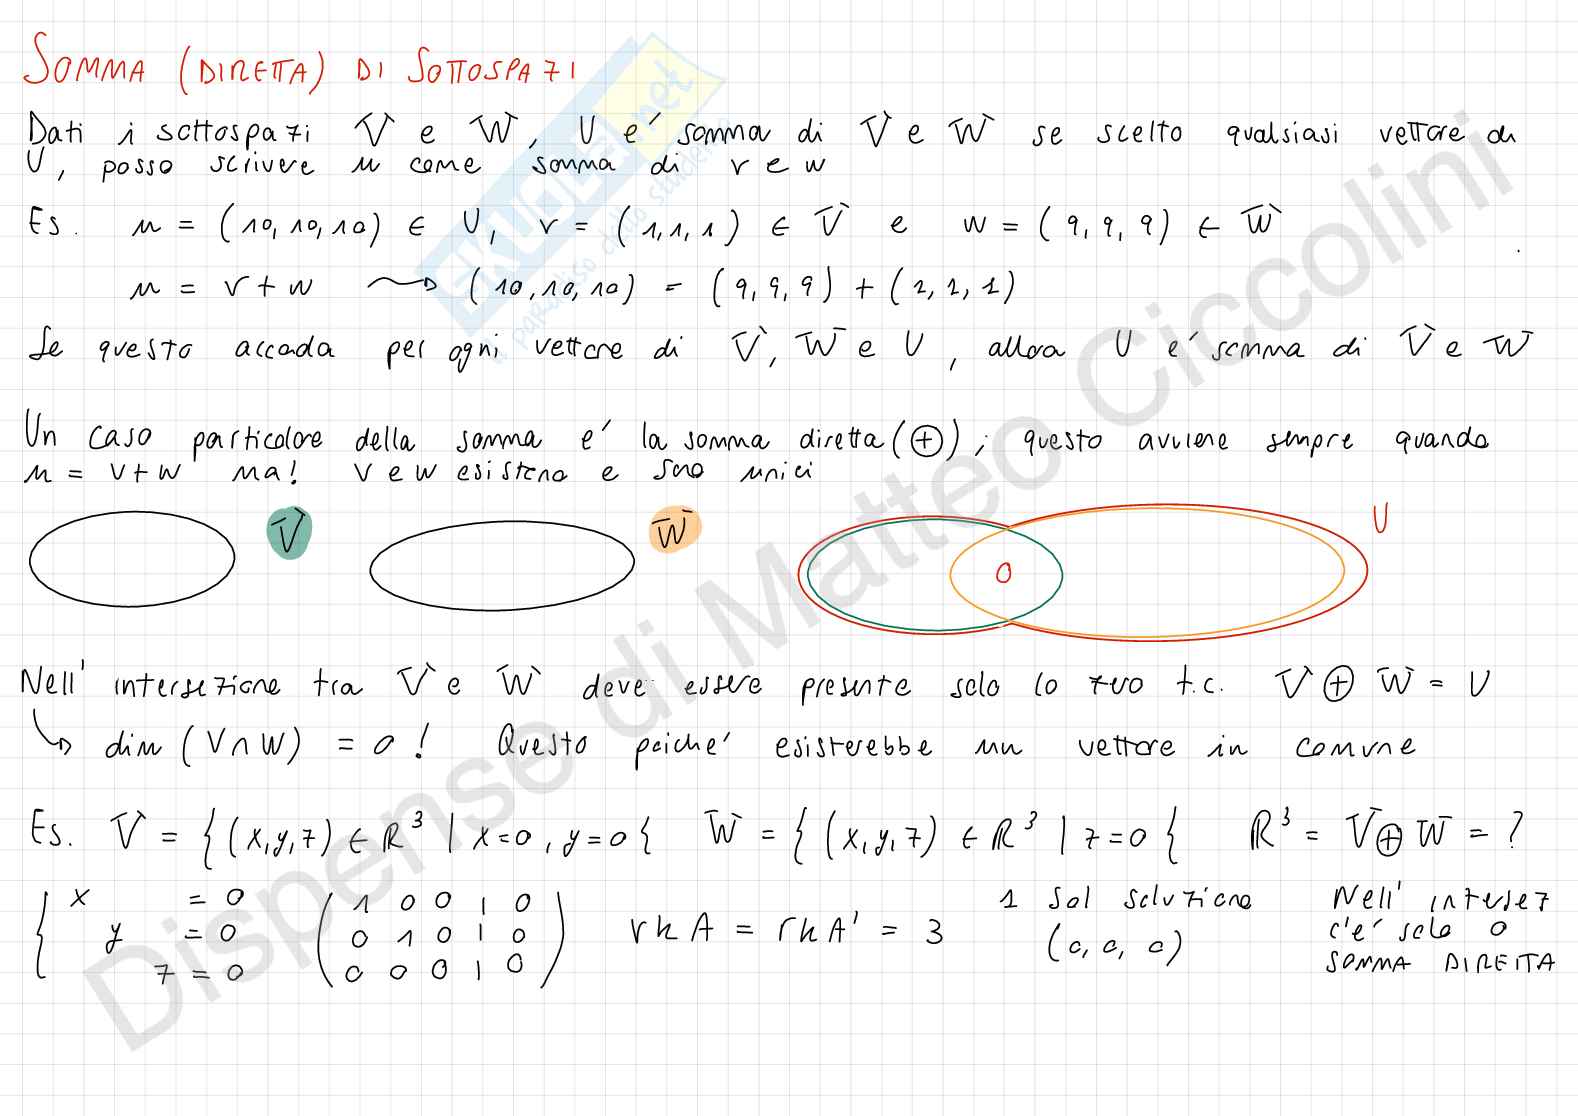 SOMMA (DIRETTA) DI SOTTOSPAZI
Dati i sottospazi V e W, U e' somma di V e W se scelto qualsiasi vettore di
U, posso scrivere u come somma di v e w
Es. u = (10, 10, 10) ∈ U, v = (1, 1, 1) ∈ V e w = (9, 9, 9) ∈ W
u = v + w ⟿ (10, 10, 10) = (9, 9, 9) + (1, 1, 1)
Se questo accada per ogni vettore di V, W e U, allora U e' somma di V e W
Un caso particolare della somma e' la somma diretta (⊕); questo avviene sempre quando
u = v + w ma! v e w esistono e sono unici
V W U
0
Nell' intersezione tra V e W deve essere presente solo lo zero t.c. V ⊕ W = U
↳ dim (V ∩ W) = 0 ! Questo poiche' esisterebbe un vettore in comune
Es. V = {(x, y, z) ∈ R³ | x = 0, y = 0{ W = {(x, y, z) ∈ R³ | z = 0{ R³ = V ⊕ W = ?
{ x = 0 ( 1 0 0 | 0 ) 1 sol soluzione Nell' intersez
y = 0 0 1 0 | 0 rk A = rk A' = 3 (0, 0, 0) c'e' solo 0
z = 0 0 0 0 | 0 SOMMA DIRETTA
Dispense di Matteo Ciccolini
SKUOLA.net
il paradiso dello studente